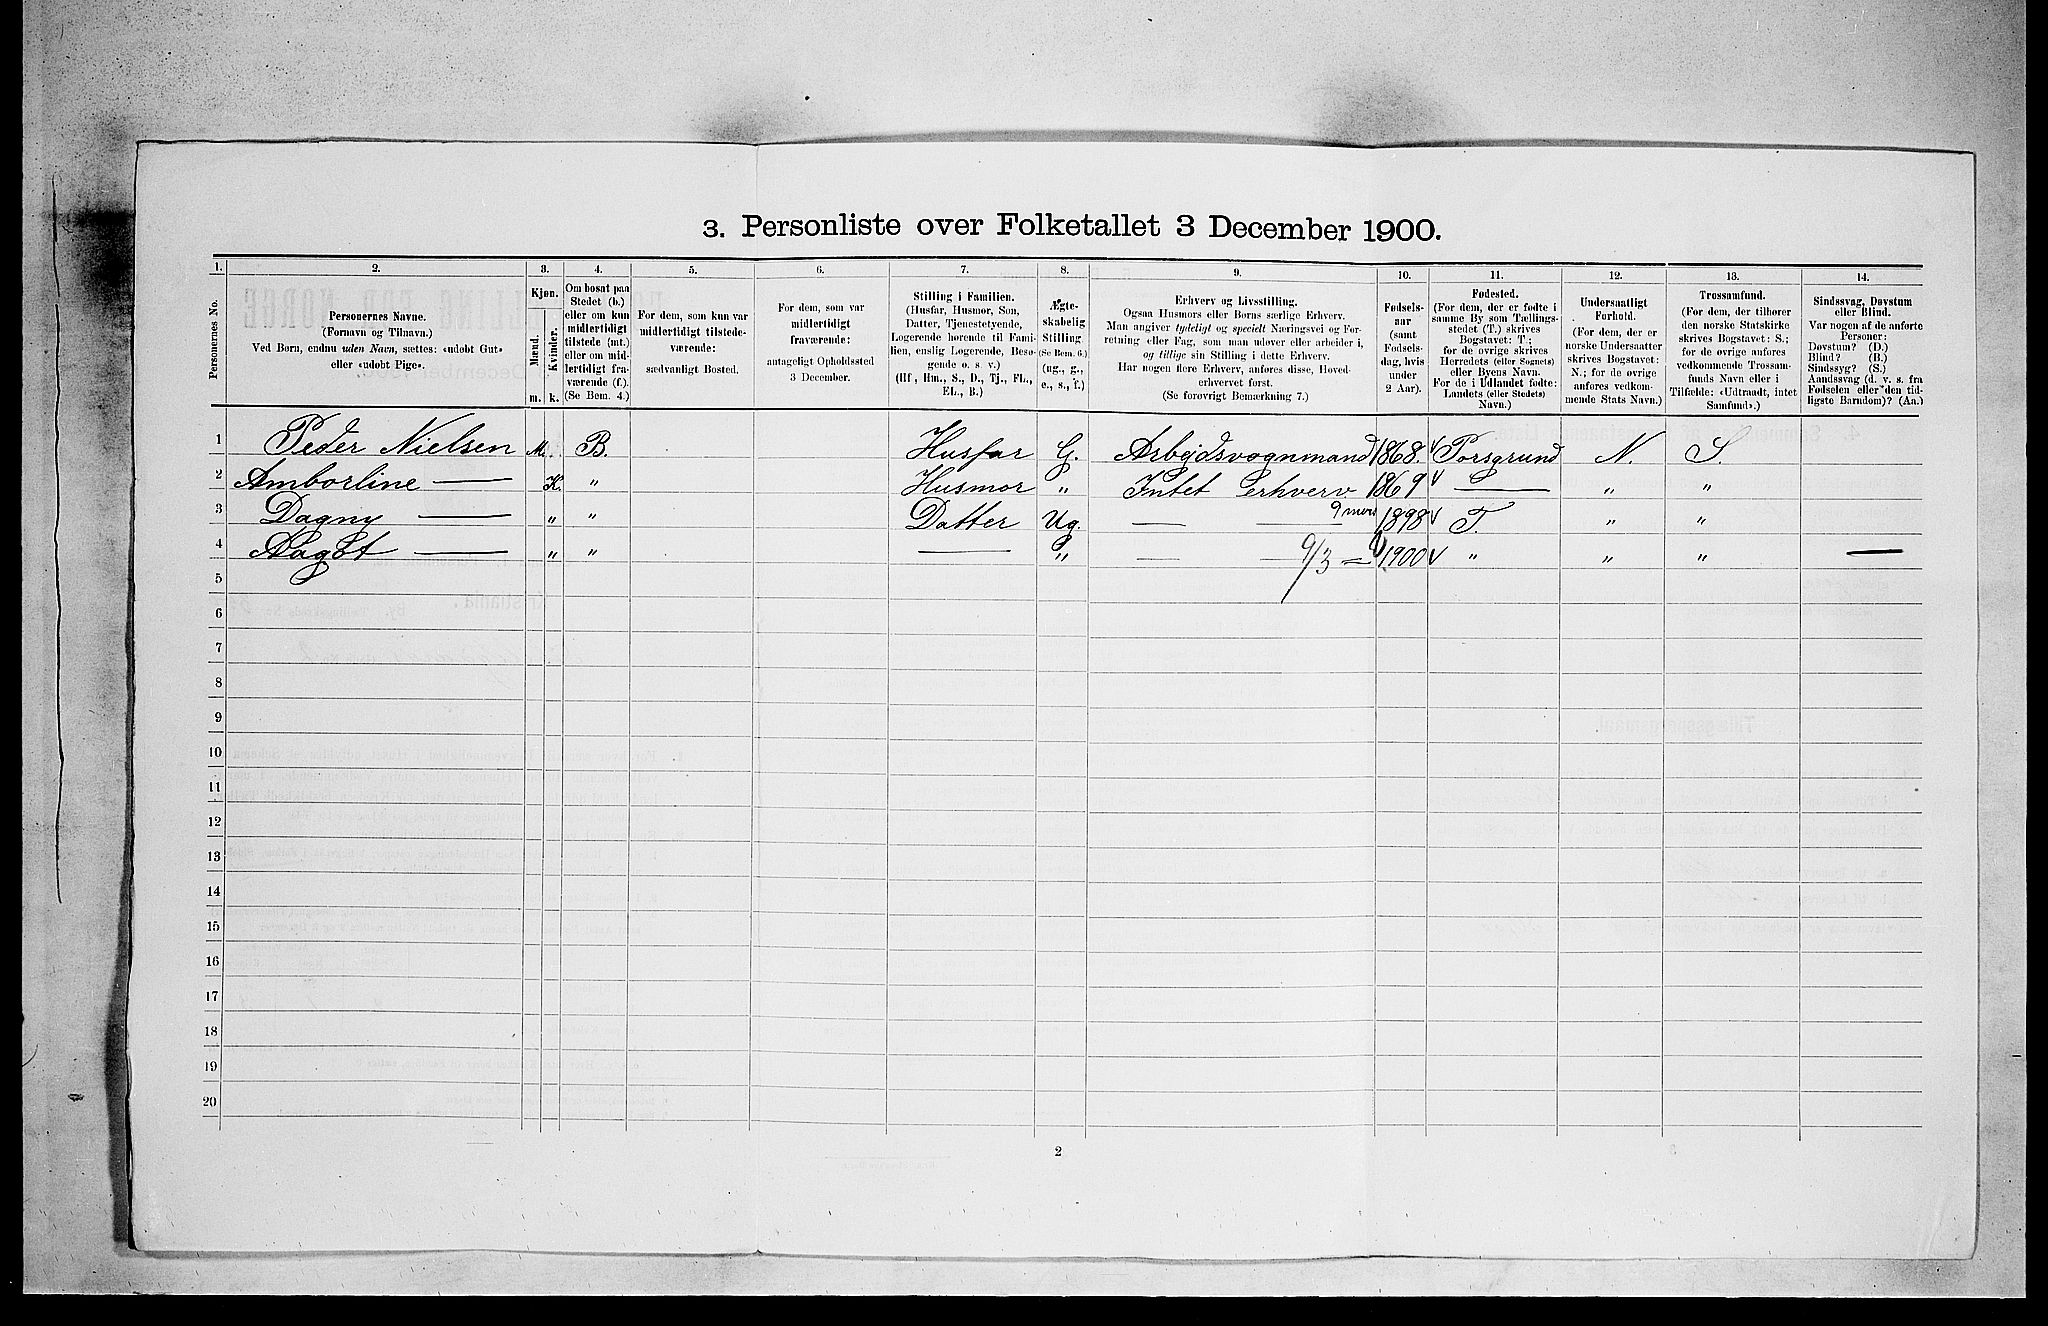 3. Personliste over Folketallet 3 December 1900.
1. 2. 3. 4. 5. 6. 7. 8. 9. 10. 11. 12. 13. 14.
Personernes No.
Personernes Navne.
(Fornavn og Tilnavn.)
Ved Børn, endnu uden Navn, sættes: «udøbt Gut»
eller «udøbt Pige».
Kjøn.
Mænd.
Kvinder.
m. k.
Om bosat paa
Stedet (b.)
eller om kun
midlertidigt
tilstede (mt.)
eller om mid-
lertidigt fra-
værende (f.).
(Se Bem. 4.)
For dem, som kun var
midlertidigt tilstede-
værende:
sædvanligt Bosted.
For dem, som var
midlertidigt
fraværende:
antageligt Opholdssted
3 December.
Stilling i Familien.
(Husfar, Husmor, Søn,
Datter, Tjenestetyende,
Logerende hørende til Fami-
lien, enslig Logerende, Besø-
gende o. s. v.)
(Hf, Hm., S., D., Tj., FL.,
EL., B.)
Ægte-
skabelig
Stilling
(Se Bem. 6.)
(ug., g.,
e., s., f.)
Erhverv og Livsstilling.
Ogsaa Husmors eller Børns særlige Erhverv.
Man angiver tydeligt og specielt Næringsvei og For-
retning eller Fag, som man udøver eller arbeider i,
og tillige sin Stilling i dette Erhverv.
Har nogen flere Erhverv, anføres disse, Hoved-
erhvervet først.
(Se forøvrigt Bemærkning 7.)
Fødsels-
aar
(samt
Fødsels-
dag, hvis
under
2 Aar).
Fødested.
(For dem, der er fødte i
samme By som Tællings-
stedet (T.) skrives
Bogstavet: T.;
for de øvrige skrives
Herredets (eller Sognets)
eller Byens Navn.
For de i Udlandet fødte:
Landets (eller Stedets)
Navn.)
Undersaatligt
Forhold.
(For dem, der er
norske Undersaatter
skrives Bogstavet:
N.; for de øvrige
anføres vedkom-
mende Stats Navn.)
Trossamfund.
(For dem, der tilhører
den norske Statskirke
skrives Bogstavet: S.;
for de øvrige anføres
vedkommende Trossam-
funds Navn eller i
Tilfælde: «Udtraadt, intet
Samfund».)
Sindssvag, Døvstum
eller Blind.
Var nogen af de anførte
Personer:
Døvstum? (D.)
Blind? (B.)
Sindssyg? (S.)
Aandssvag (d. v. s. fra
Fødselen eller den tid-
ligste Barndom)? (Aa.)
1 Peder Nielsen M. B. Husfar G. Arbejdsvognmand 1868. Porsgrund N. S.
2 Amborline — K. " Husmor " Intet Erhverv. 1869 — " "
3 Dagny — " " Datter Ug. — — 1898 T. " "
4 Aagot — " " — " — 9/3 — 1900 " " " —
5
6
7
8
9
10
11
12
13
14
15
16
17
18
19
20
2